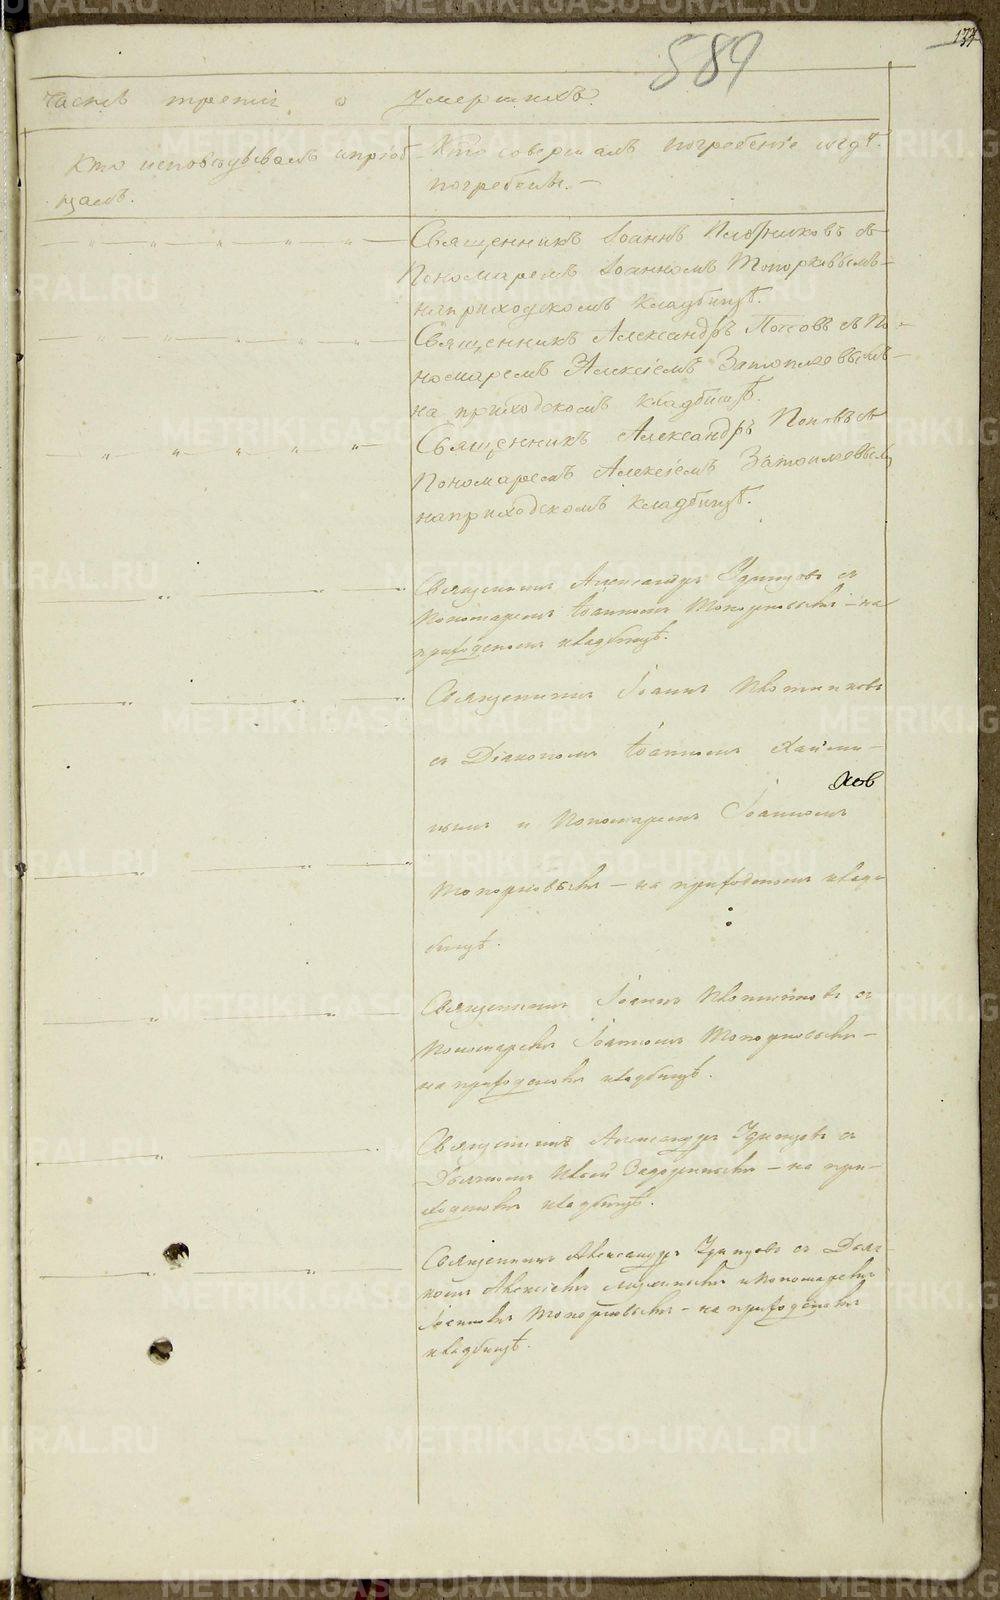 589
134
Часть третія о умершихъ.
Кто исповѣдывалъ и пріоб-
щалъ.
Кто совершалъ погребеніе и гдѣ
погребены. —
Священникъ Іоаннъ Плотниковъ съ
Пономаремъ Іоанномъ Топорковымъ —
на приходскомъ кладбищѣ.
Священникъ Александръ Поповъ съ По-
номаремъ Алексіемъ Затопляевымъ —
на приходскомъ кладбищѣ.
Священникъ Александръ Поповъ съ
Пономаремъ Алексіемъ Затопляевымъ
на приходскомъ кладбищѣ.
Священникъ Александръ Удинцовъ съ
Пономаремъ Іоанномъ Топорковымъ — на
приходскомъ кладбищѣ.
Священникъ Іоаннъ Плотниковъ
съ Діакономъ Іоанномъ
ков
и Пономаремъ Іоанномъ
Топорковымъ — на приходскомъ клад-
бищѣ.
Священникъ Іоаннъ Плотниковъ съ
Пономаремъ Іоанномъ Топорковымъ —
на приходскомъ кладбищѣ.
Священникъ Александръ Удинцовъ съ
Дьячкомъ — на при-
ходскомъ кладбищѣ.
Священникъ Александръ Удинцовъ съ Дьяч-
комъ и Пономаремъ
Іоанномъ Топорковымъ — на приходскомъ
кладбищѣ.
METRIKI.GASO-URAL.RU